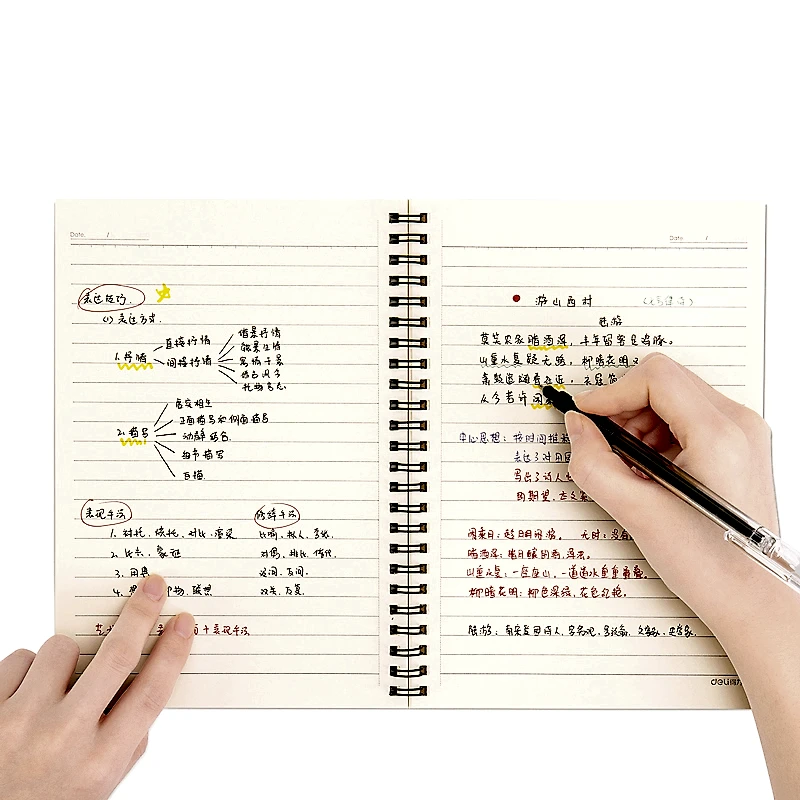 Date. /
表达技巧.
(1) 表达方式.
1. 抒情
直接抒情
间接抒情
借景抒情
融景生情
寓情于景
托物言志.
2. 描写
虚实相生
正面描写和侧面描写
动静结合.
细节描写
白描
表现手法
1. 衬托、
对比、渲染
2. 比兴、象征
3. 用典
4.
联想
修辞手法
比喻、拟人、夸张、
对偶、排比、借代、
设问、反问、
双关、反复.
表现手法
Date. /
游山西村
陆游
莫笑农家腊酒浑，丰年留客足鸡豚。
山重水复疑无路，柳暗花明又
箫鼓追随春社近，衣冠简
从今若许闲
中心思想：按时间推移
表达了对田
写出了诗人
的期望，
闲乘月：趁月明闲游。 无时：没有
腊酒浑：
山重水复：一座座山，一道道水重重叠叠。
柳暗花明：柳色深绿，花色红艳。
陆游：南宋爱国诗人，
文学家、史学家。
deli得力